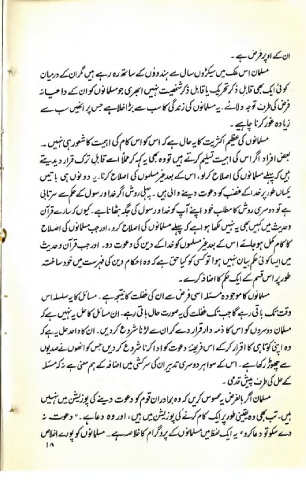 ان کے اوپر فرض ہے ۔
مسلمان اس ملک میں سیکڑوں سال سے ہندوؤں کے ساتھ رہ رہے ہیں مگر ان کے درمیان
کوئی ایک بھی قابل ذکر تحریک یا قابل ذکر شخصیت نہیں ابھری جو مسلمانوں کو ان کے داعیانہ
فرض کی طرف توجہ دلائے ۔ یہ مسلمانوں کی زندگی کا سب سے بڑا خلا ہے جس پر انھیں سب سے
زیادہ غور کرنا چاہیے ۔
مسلمانوں کی عظیم اکثریت کا یہ حال ہے کہ اس کو اس کام کی اہمیت کا شعور ہی نہیں ۔
بعض افراد اگر اس کی اہمیت تسلیم کرتے ہیں تو وہ بھی یہ کہہ کر عملاً اسے قابل ترک قرار دیدیتے
ہیں کہ پہلے مسلمانوں کی اصلاح کرلو، اس کے بعد غیر مسلموں کی اصلاح کرنا ۔ یہ دونوں ہی باتیں
یکساں طور پر خدا کے غضب کو دعوت دینے والی ہیں ۔ پہلی روش اگر خدا و رسول کے حکم سے سرتابی
ہے تو دوسری روش کا مطلب خود اپنے آپ کو خدا و رسول کی جگہ بٹھانا ہے۔ کیوں کہ سارے قرآن
و حدیث میں کہیں بھی یہ نہیں لکھا ہوا ہے کہ پہلے مسلمانوں کی اصلاح کرو، اور جب مسلمانوں کی اصلاح
کا کام مکمل ہو جائے اس کے بعد غیر مسلموں کو خدا کے دین کی دعوت دو۔ اور جب قرآن و حدیث
میں ایسا کوئی حکم بیان نہیں ہوا تو کسی کو کیا حق ہے کہ وہ احکام دین کی فہرست میں خود ساختہ
طور پر اس قسم کے ایک حکم کا اضافہ کرے ۔
مسلمانوں کا موجودہ مسئلہ اسی فرض سے ان کی غفلت کا نتیجہ ہے ۔ مسائل کا یہ سلسلہ اس
وقت تک باقی رہے گا جب تک غفلت کی یہ صورت حال باقی ہے۔ ان مسائل کا حل یہ نہیں ہے کہ
مسلمان دوسروں کو اس کا ذمہ دار قرار دے کر ان سے لڑنا شروع کر دیں۔ ان کا واحد حل یہ ہے کہ
وہ اپنی کوتاہی کا اقرار کرکے اس فریضۂ دعوت کو ادا کرنا شروع کر دیں جس کو انھوں نے صدیوں
سے چھوڑ رکھا ہے۔ اس کے سوا ہر دوسری تدبیر ان کی سرکشی میں اضافہ کے ہم معنی ہے نہ کہ مسئلہ
کے حل کی طرف پیش قدمی ۔
مسلمان اگر بالفرض یہ محسوس کریں کہ وہ برادران قوم کو دعوت دینے کی پوزیشن میں نہیں
ہیں، تب بھی وہ یقینی طور پر ایک کام کرنے کی پوزیشن میں ہیں، اور وہ دعا ہے۔ "دعوت نہ
دے سکو تو دعا کرو" یہ ایک لفظ میں مسلمانوں کے پروگرام کا خلاصہ ہے۔ مسلمانوں کو پورے اخلاص
۱۸